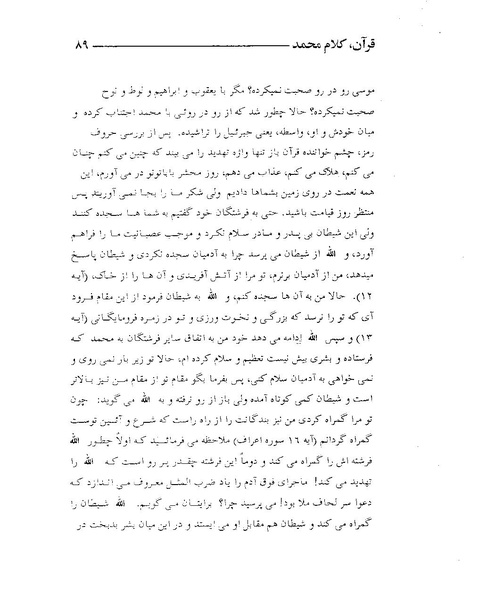 قرآن، کلام محمد ــــــــــــــــــ ۸۹
موسی رو در رو صحبت نمیکرده؟ مگر با یعقوب و ابراهیم و لوط و نوح
صحبت نمیکرده؟ حالا چطور شد که از رو در روئی با محمد اجتناب کرده و
میان خودش و او، واسطه، یعنی جبرئیل را تراشیده. پس از بررسی حروف
رمز، چشم خواننده قرآن باز تنها واژه تهدید را می بیند که چنین می کنم چنان
می کنم، هلاک می کنم، عذاب می دهم، روز محشر باباتونو در می آورم، این
همه نعمت در روی زمین بشماها دادیم ولی شکر ما را بجا نمی آوریند پس
منتظر روز قیامت باشید. حتی به فرشتگان خود گفتیم به شما ها سجده کنند
ولی این شیطان بی پدر و مادر سلام نکرد و موجب عصبانیت ما را فراهم
آورد، و الله از شیطان می پرسد چرا به آدمیان سجده نکردی و شیطان پاسخ
میدهد، من از آدمیان برترم، تو مرا از آتش آفریدی و آن ها را از خاک، (آیه
۱۲). حالا من به آن ها سجده کنم، و الله به شیطان فرمود از این مقام فرود
آی که تو را نرسد که بزرگی و نخوت ورزی و تو در زمره فرومایگانی (آیه
۱۳) و سپس الله إدامه می دهد خود من به اتفاق سایر فرشتگان به محمد که
فرستاده و بشری بیش نیست تعظیم و سلام کرده ام، حالا تو زیر بار نمی روی و
نمی خواهی به آدمیان سلام کنی، پس بفرما بگو مقام تو از مقام من نیز بالاتر
است و شیطان کمی کوتاه آمده ولی باز از رو نرفته و به الله می گوید: چون
تو مرا گمراه کردی من نیز بندگانت را از راه راست که شرع و آئین توست
گمراه گردانم (آیه ۱۶ سوره اعراف) ملاحظه می فرمائید که اولاً چطور الله
فرشته اش را گمراه می کند و دوماً این فرشته چقدر پر رو است که الله را
تهدید می کند! ماجرای فوق آدم را یاد ضرب المثل معروف می اندازد که
دعوا سر لحاف ملا بود! می پرسید چرا؟ برایتان می گویم. الله شیطان را
گمراه می کند و شیطان هم مقابل او می ایستد و در این میان بشر بدبخت در